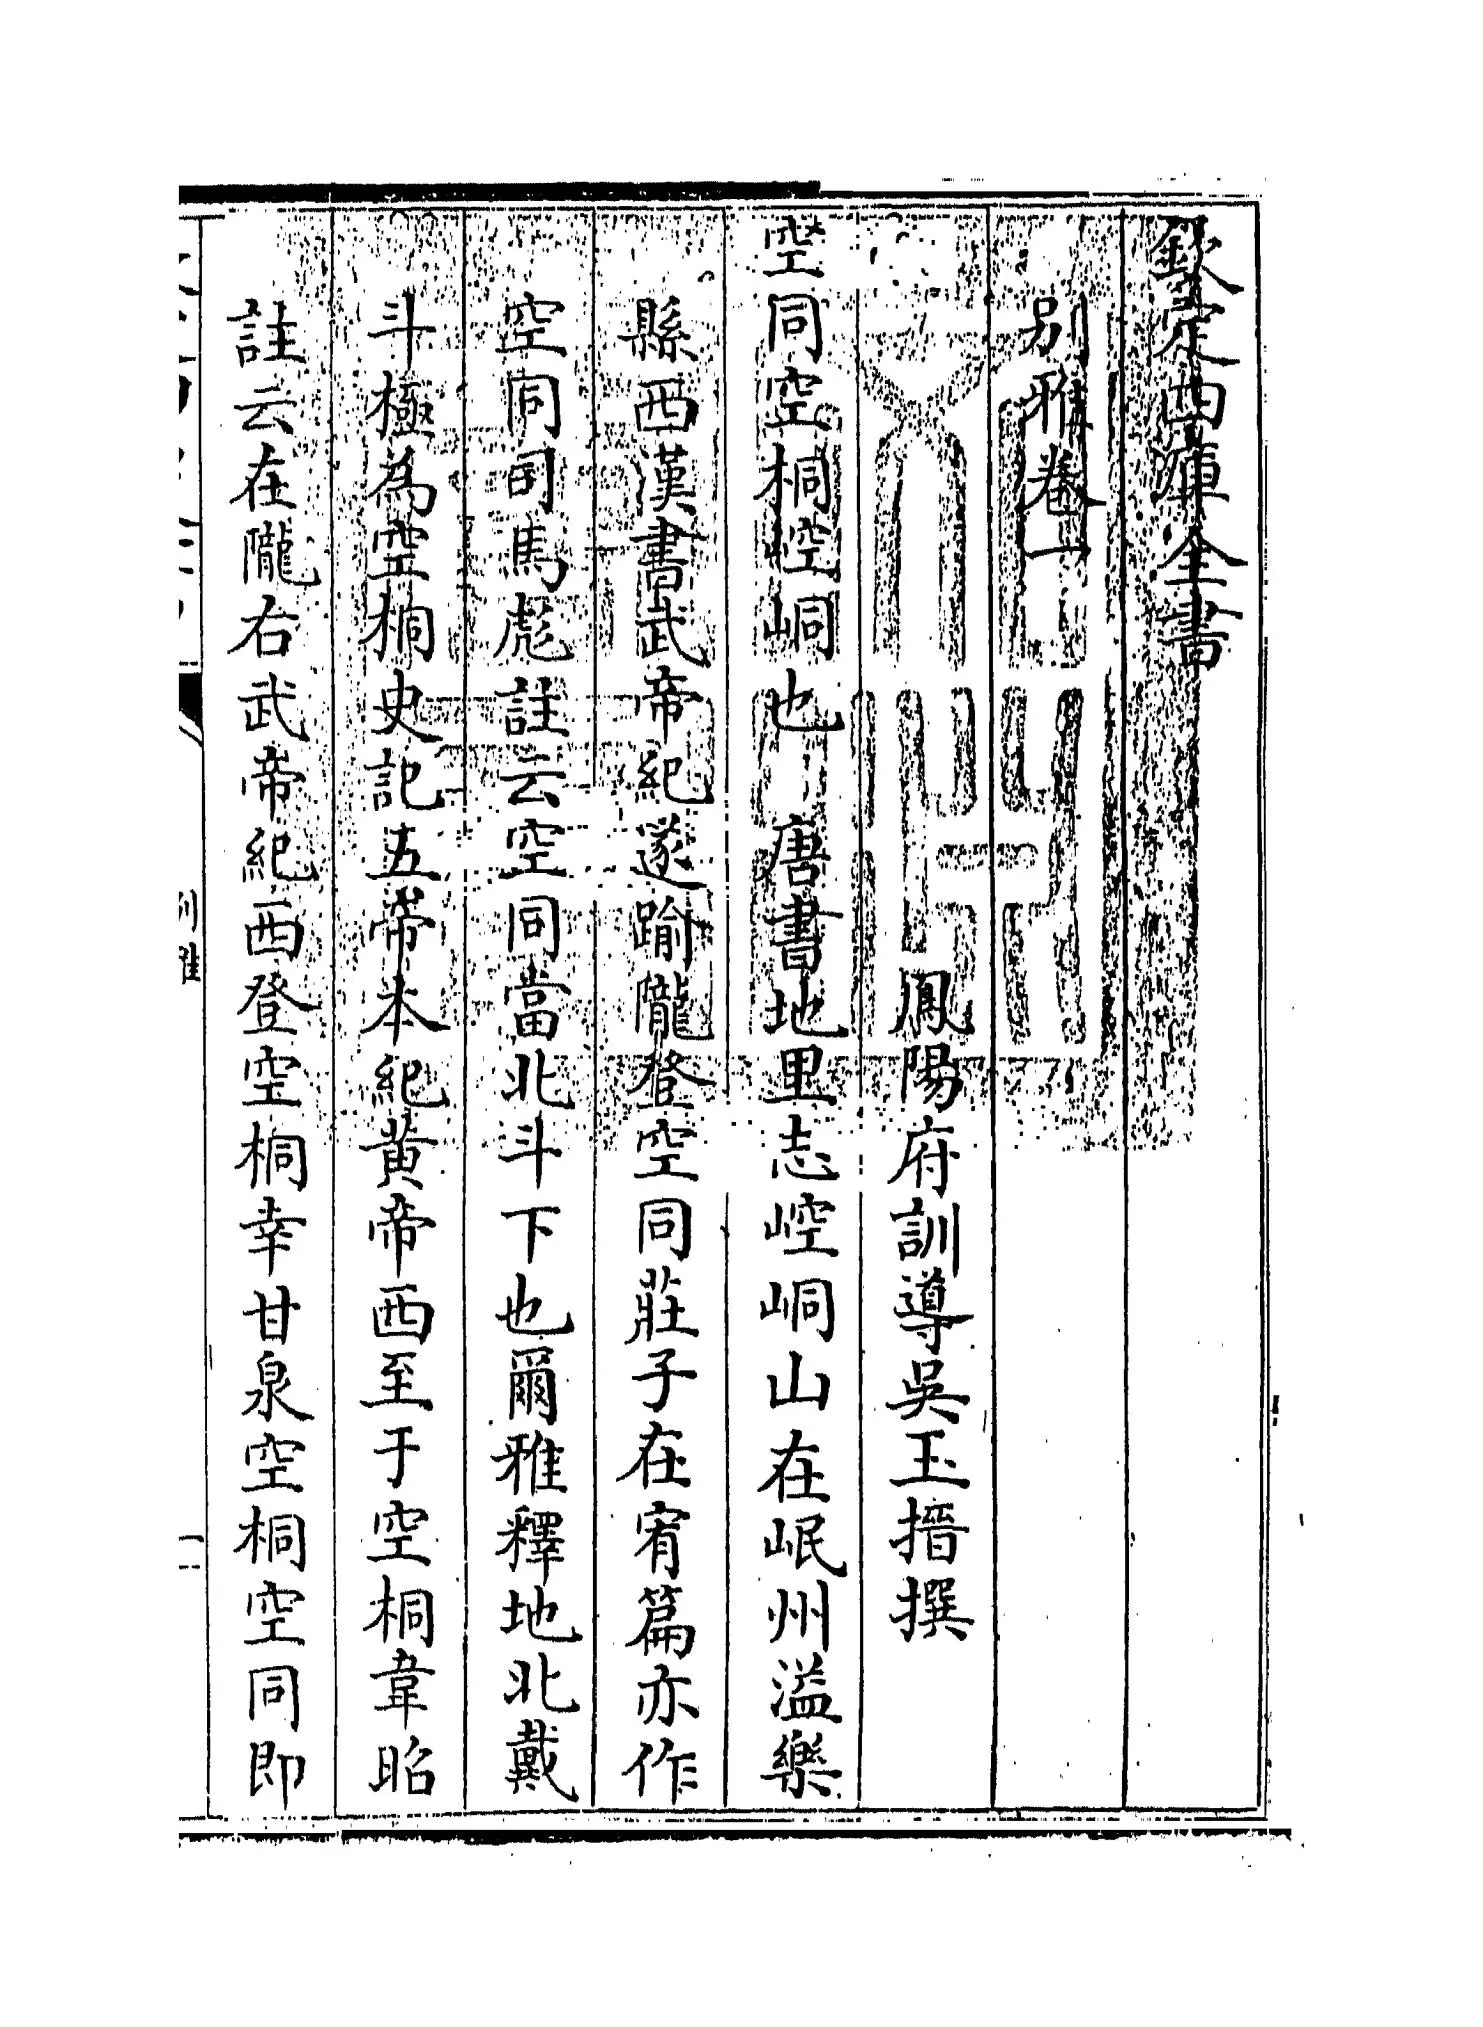 欽定四庫全書
別雅卷一
鳳陽府訓導吳玉搢撰
空同空桐崆峒也唐書地里志崆峒山在岷州溢樂
縣西漢書武帝紀遂踰隴登空同莊子在宥篇亦作
空同司馬彪註云空同當北斗下也爾雅釋地北戴
斗極為空桐史記五帝本紀黃帝西至于空桐韋昭
註云在隴右武帝紀西登空桐幸甘泉空桐空同即